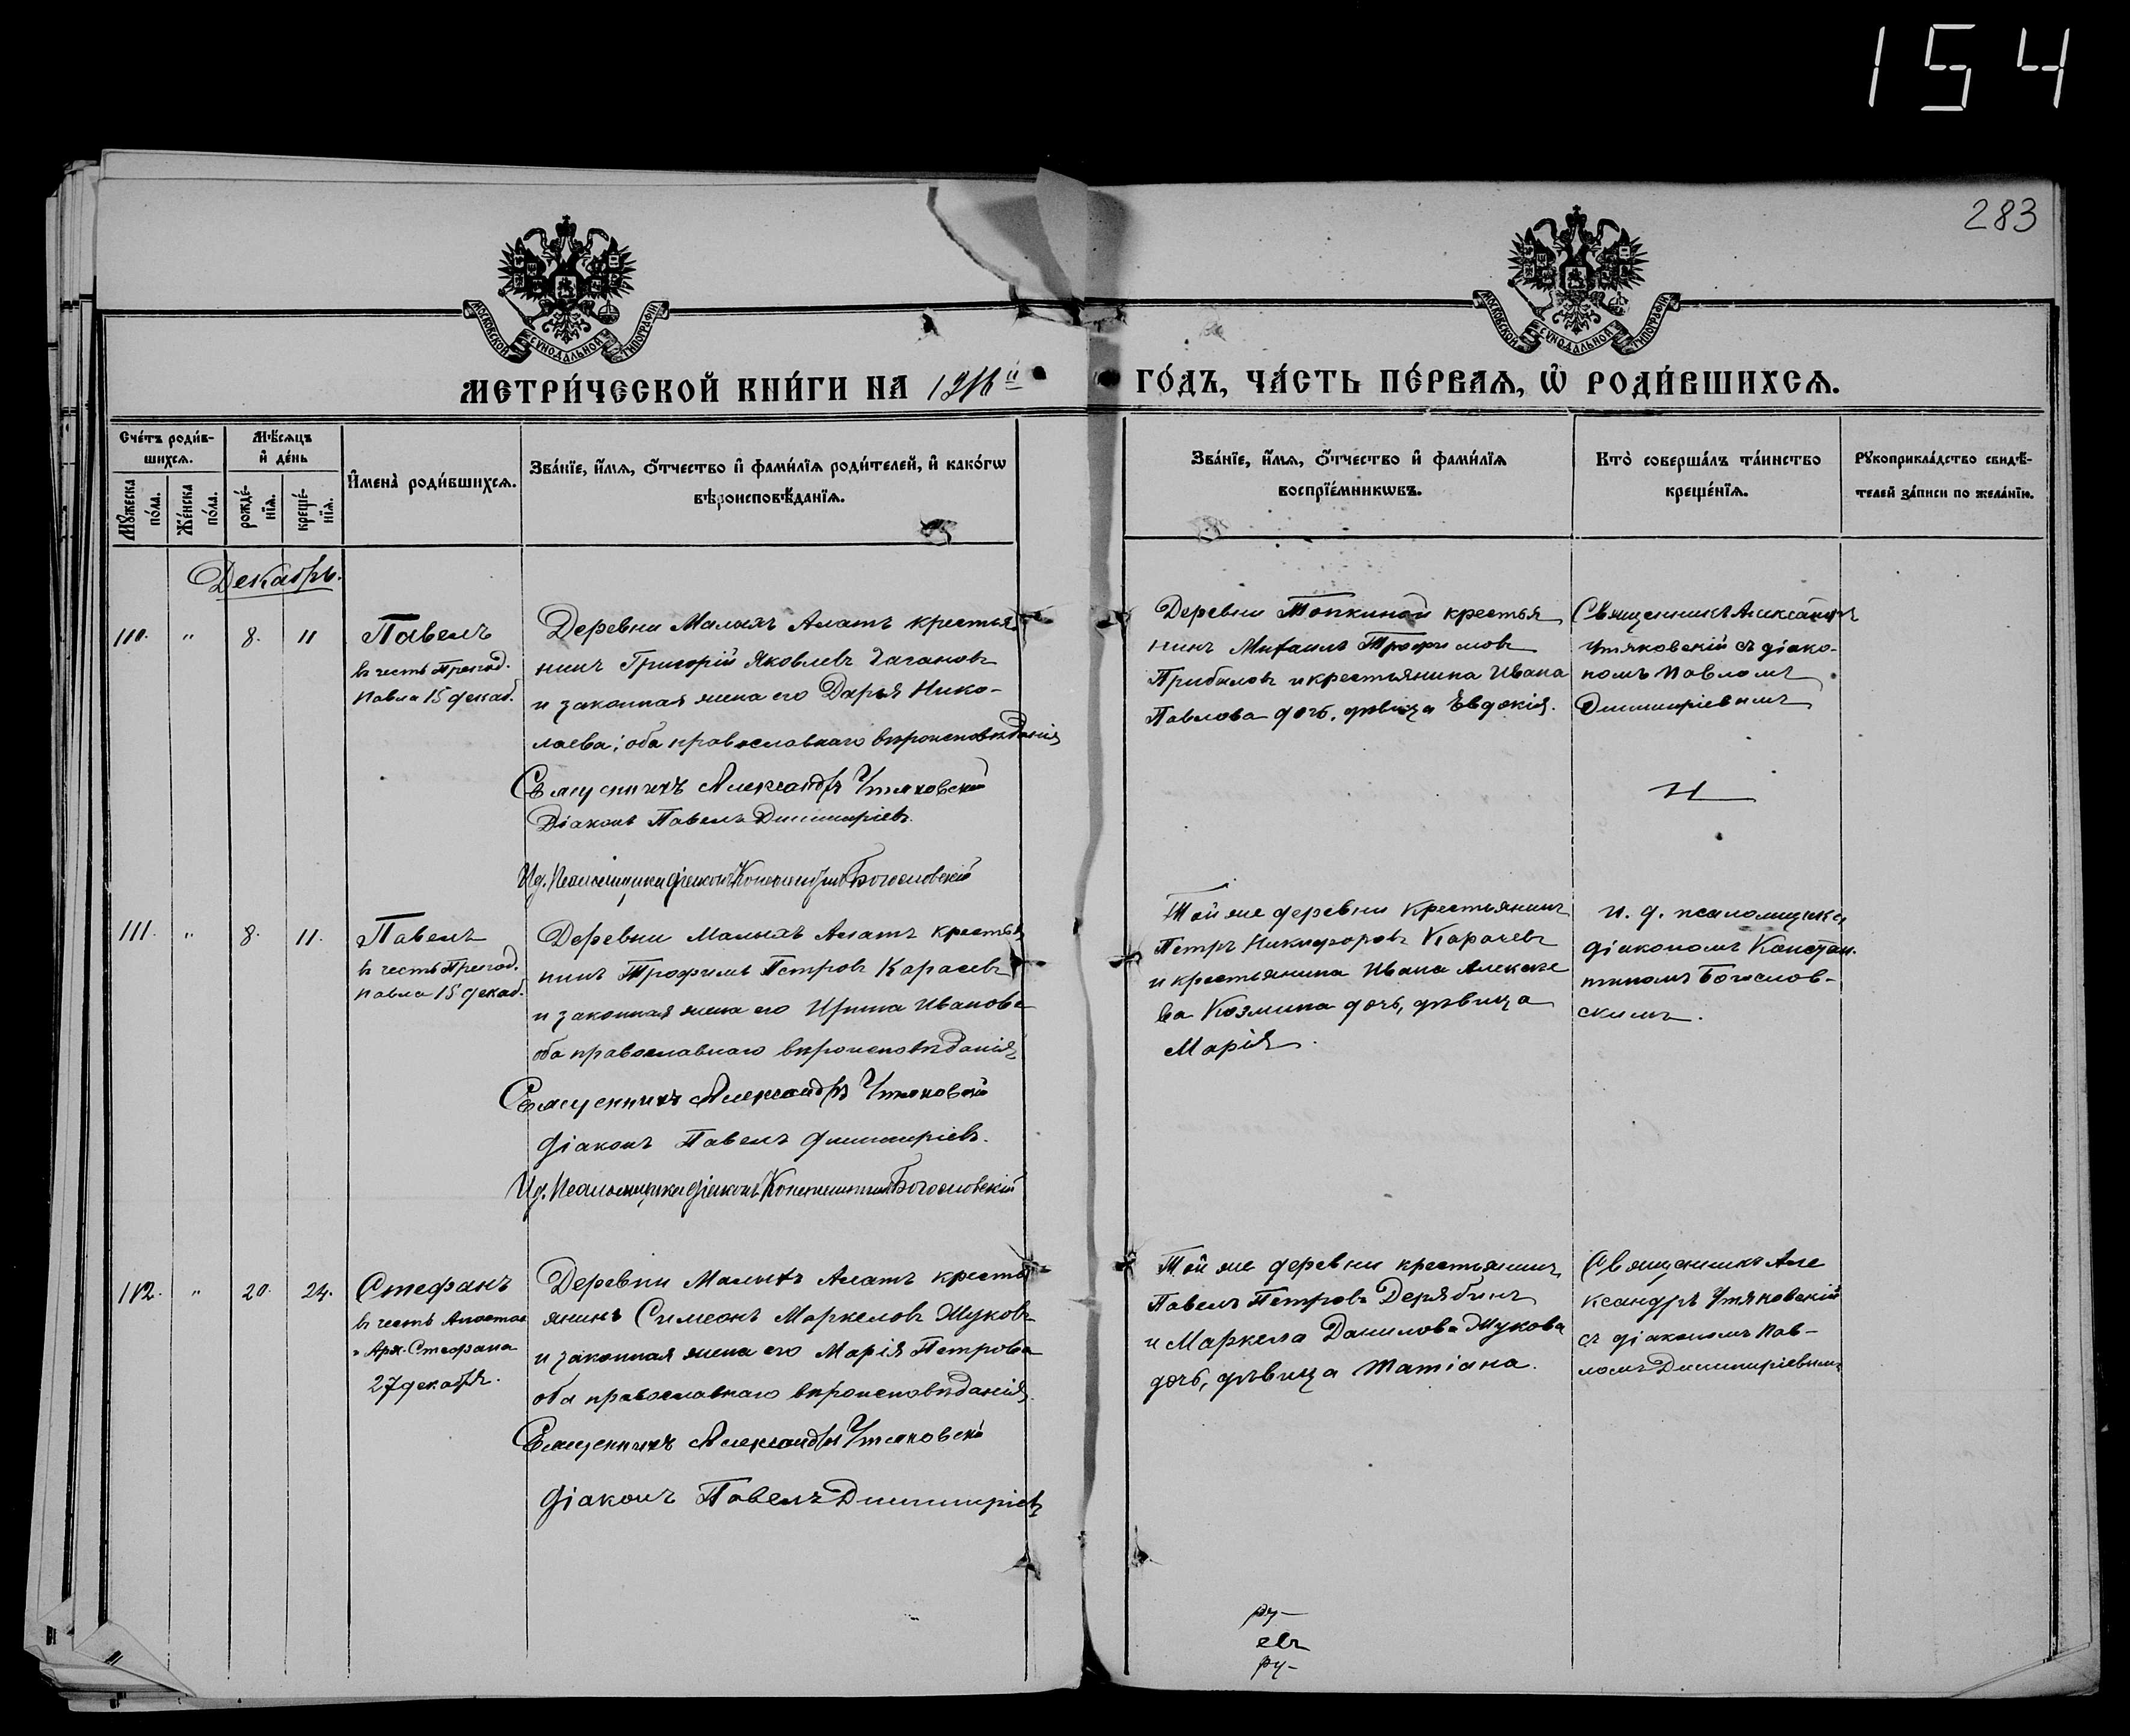 154
283
МОСКОВСКОЙ СѴНОДАЛЬНОЙ ТИПОГРАФІИ
МОСКОВСКОЙ СѴНОДАЛЬНОЙ ТИПОГРАФІИ
МЕТРИ́ЧЕСКОЙ КНИ́ГИ НА
ГО́ДЪ, ЧА́СТЬ ПЕ́РВАѦ, Ѡ҆ РОДИ́ВШИХСѦ.
Сче́тъ роди́в-
шихсѧ.
Мꙋ́жеска
по́ла.
Же́нска
по́ла.
Мѣ́сѧцъ
и҆ де́нь
рожде́-
нїѧ.
креще́-
нїѧ.
И҆мена̀ роди́вшихсѧ.
Зва́нїе, и҆́мѧ, ѻ҆́тчество и҆ фами́лїѧ роди́телей, и҆ како́гѡ
вѣроисповѣ́данїѧ.
Зва́нїе, и҆́мѧ, ѻ҆́тчество и҆ фами́лїѧ
воспрїе́мникѡвъ.
Кто̀ соверша́лъ та́инство
креще́нїѧ.
Рꙋкоприкла́дство свидѣ́-
телей за́писи по жела́нїю.
Декабрь.
110. " 8. 11
Павелъ
въ честь Препод.
Павла 15 декаб.
Деревни Малыхъ Алатъ крестья
нинъ Григорій Яковлевъ Чагановъ
и законная жена его Дарья Нико-
лаева; оба православнаго вѣроисповѣданія
Священникъ Александръ Утяковскій
Діаконъ Павелъ Димитріевъ.
И.д. Псаломщика діаконъ Константинъ Богословскій
Деревни Топкиной крестья
нинъ Михаилъ Трофимовъ
Прибыловъ и крестьянина Ивана
Павлова дочь, дѣвица Евдокія.
Священникъ Александръ
Утяковскій съ діако-
номъ Павломъ
Димитріевымъ
111. " 8. 11.
Павелъ
въ честь Препод.
Павла 15 декаб.
Деревни Малыхъ Алатъ крестья
нинъ Трофимъ Петровъ Карачевъ
и законная жена его Ирина Иванова
оба православнаго вѣроисповѣданія
Священникъ Александръ Утяковскій
Діаконъ Павелъ Димитріевъ.
И.д. Псаломщика діаконъ Константинъ Богословскій
Той же деревни крестьянинъ
Петръ Никифоровъ Карачевъ
и крестьянина Ивана Алексѣе
ва Козмина дочь, дѣвица
Марія.
и. д. псаломщика,
діакономъ Констан-
тиномъ Богослов-
скимъ.
112. " 20. 24.
Стефанъ
въ честь Апостол
Арх. Стефана
27 декабря.
Деревни Малыхъ Алатъ кресть
янинъ Симеонъ Маркеловъ Жуковъ
и законная жена его Марія Петрова
оба православнаго вѣроисповѣданія.
Священникъ Александръ Утяковскій
Діаконъ Павелъ Димитріевъ
Той же деревни крестьянинъ
Павелъ Петровъ Дерябинъ
и Маркела Данилова Жукова
дочь, дѣвица Татіана.
Священникъ Але
ксандръ Утяковскій
съ діакономъ Пав-
ломъ Димитріевымъ
ру-
евъ
ру-